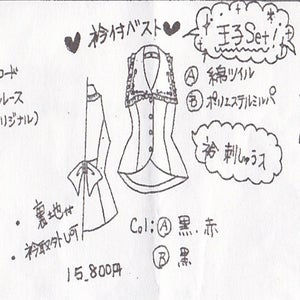 ♥ 衿付ベスト ♥
王子Set!
コード
Ⓐ 綿ツイル
レース
Ⓑ ポリエステルミルパ
リジナル)
衿 刺しゅうス
・裏地付
・衿取外し可
Col: Ⓐ 黒. 赤
Ⓑ 黒
15,800円